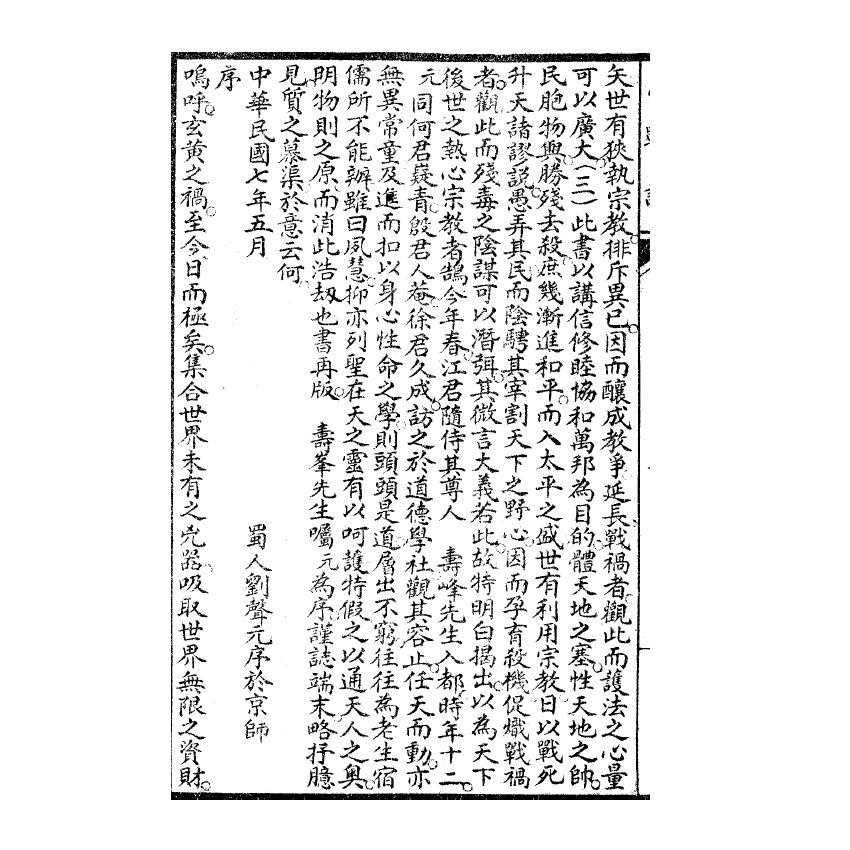 矢世有狹執宗教排斥異已因而釀成教爭延長戰禍者觀此而護法之心量
可以廣大(三)此書以講信修睦協和萬邦為目的體天地之塞性天地之帥
民胞物與勝殘去殺庶幾漸進和平而入太平之盛世有利用宗教日以戰死
升天諸謬說愚弄其民而陰騁其宰割天下之野心因而孕育殺機促熾戰禍
者觀此而殘毒之陰謀可以潛弭其微言大義若此故特明白揭出以為天下
後世之熱心宗教者鵠今年春江君隨侍其尊人 壽峰先生入都時年十二
元同何君嶷青殷君人菴徐君久成訪之於道德學社觀其容止任天而動亦
無異常童及進而扣以身心性命之學則頭頭是道層出不窮往往為老生宿
儒所不能辨雖曰夙慧抑亦列聖在天之靈有以呵護特假之以通天人之奧
明物則之原而消此浩刼也書再版 壽峯先生囑元為序謹誌端末略抒臆
見質之慕渠於意云何
中華民國七年五月 蜀人劉聲元序於京師
序
嗚呼玄黃之禍至今日而極矣集合世界未有之兇器吸取世界無限之資財